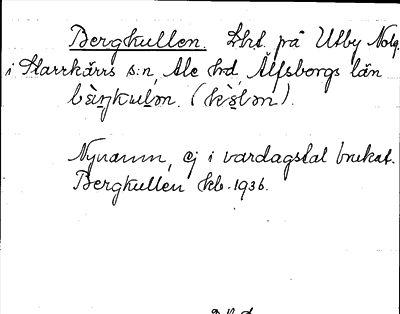 Bergkullen. Lht. på Utby Nolg.
i Starrkärrs s:n, Ale hd, Älfsborgs län
Nynamn, ej i vardagstal brukat.
Bergkullen kb. 1936.